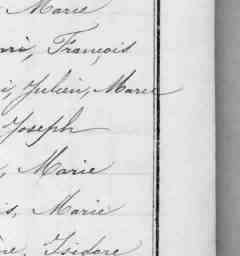 Marie
François
Julien, Marie
Joseph
Marie
Marie
Isidore